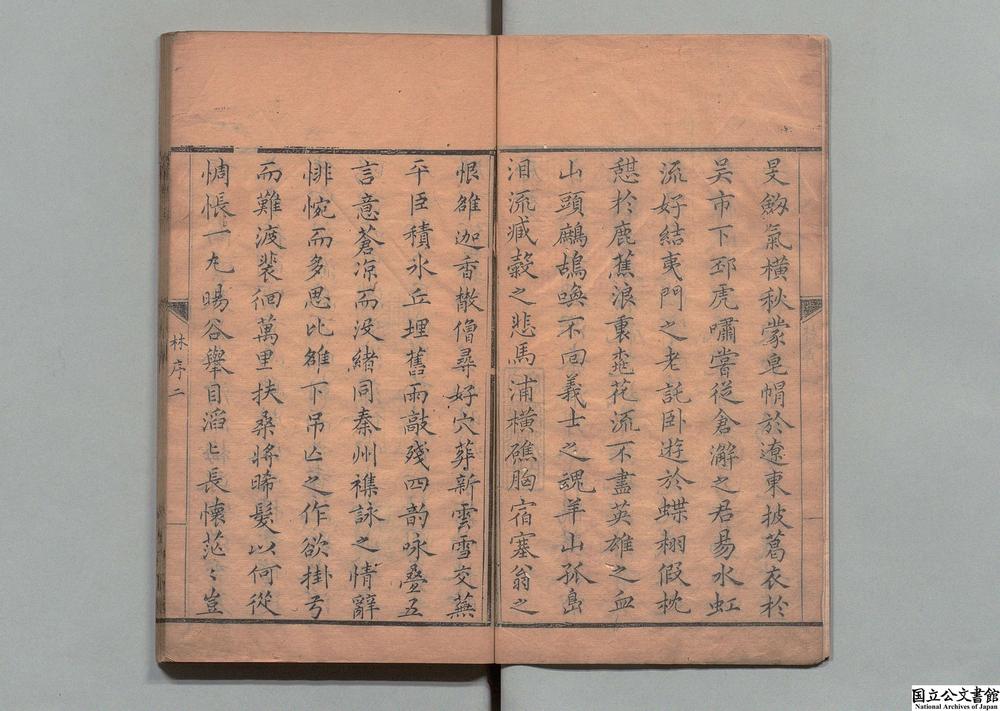 旻劒氣橫秋蒙皂帽於遼東披葛衣於
吴市下邳虎嘯嘗從倉澥之君昜水虹
流好結夷門之老託卧遊於蝶栩假枕
憇於鹿蕉浪裏桃花流不盡英雄之血
山頭鷓鴣喚不回義士之魂羊山孤島
泪流臧穀之悲馬浦橫礁胸宿塞翁之
恨雒迦香散僧尋好穴葬新雲雪交蕪
平臣積氷丘埋舊雨敲殘四韵咏疊五
言意蒼凉而没緒同秦州襍詠之情辭
悱惋而多思比雒下吊亡之作欲掛弓
而難渡裴徊萬里扶桑將晞髮以何從
惆悵一丸暘谷舉目滔〻長懷茫〻豈
林序二
国立公文書館
National Archives of Japan